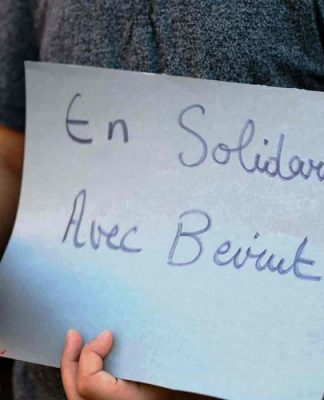 En Solidar
Avec Beirut